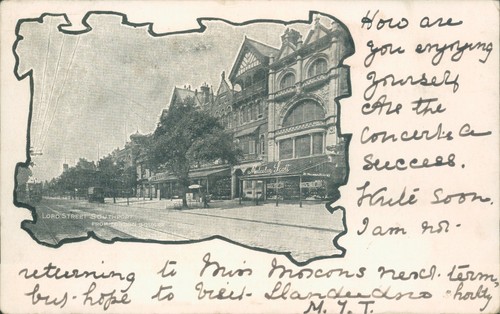 How are
you enjoying
yourself
Are the
Concerts a
success.
Write soon.
I am not
LORD STREET SOUTHPORT
FROM
returning to Miss Moxons next term,
but hope to visit Llandudno shortly
M. J. T.